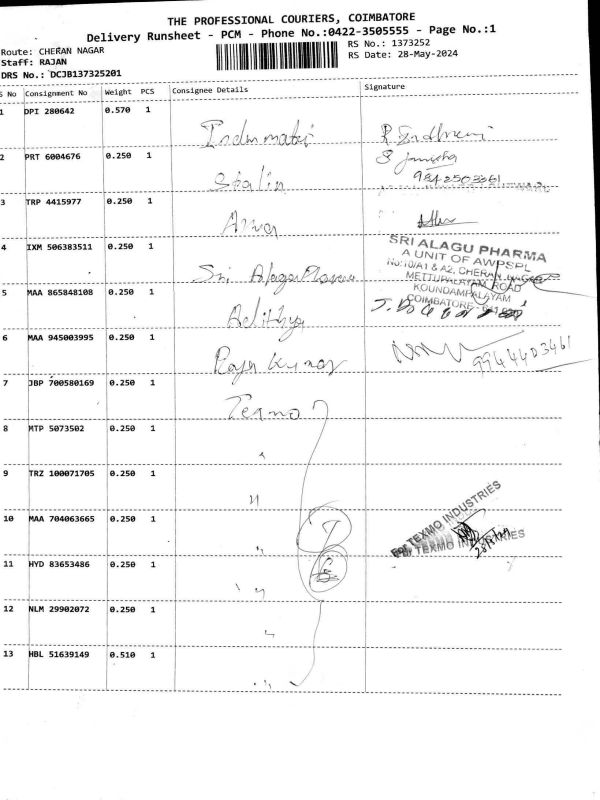 THE PROFESSIONAL COURIERS, COIMBATORE
Delivery Runsheet - PCM - Phone No.:0422-3505555 - Page No.:1
Route: CHERAN NAGAR RS No.: 1373252
Staff: RAJAN RS Date: 28-May-2024
DRS No.: DCJB137325201
S No Consignment No Weight PCS Consignee Details Signature
1 DPI 280642 0.570 1
Indumathi
2 PRT 6004676 0.250 1
Stalin 9842503361
3 TRP 4415977 0.250 1
4 IXM 506383511 0.250 1
Sri Alagu Pharma
SRI ALAGU PHARMA
A UNIT OF AWPSPL
No:10/A1 & A2, CHERAN NAGAR
METTUPALAYAM ROAD
KOUNDAMPALAYAM
COIMBATORE
5 MAA 865848108 0.250 1
Adithya
6 MAA 945003995 0.250 1
Raja Kumar 9944403461
7 JBP 700580169 0.250 1
Texmo
8 MTP 5073502 0.250 1
9 TRZ 100071705 0.250 1
10 MAA 704063665 0.250 1
For TEXMO INDUSTRIES
For TEXMO INDUSTRIES
11 HYD 83653486 0.250 1
12 NLM 29902072 0.250 1
13 HBL 51639149 0.510 1